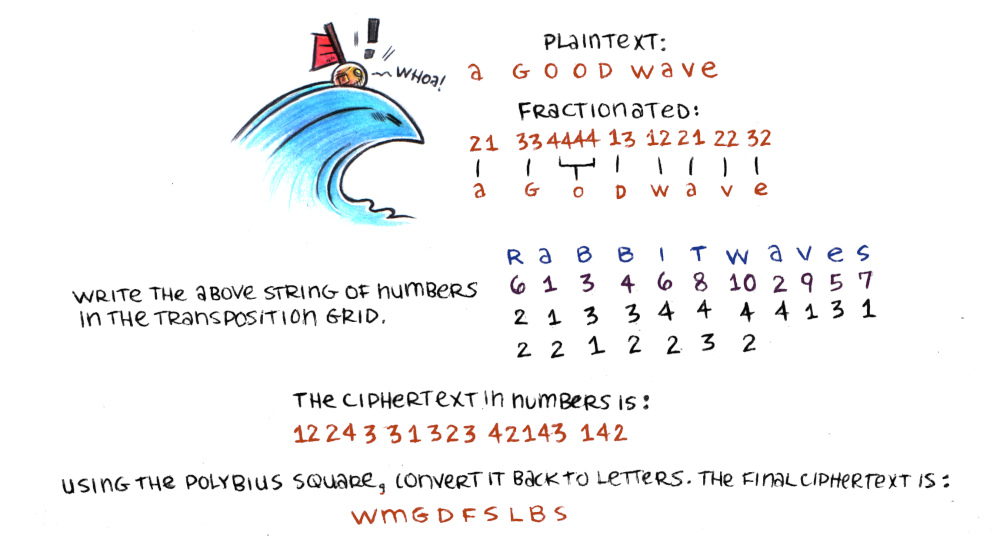 PLAINTEXT:
WHOA!
a GOOD wave
FRACTIONATED:
21 33 4444 13 12 21 22 32
a G O D W a v e
R a B B I T W a v e S
6 1 3 4 6 8 10 2 9 5 7
WRITE THE aBOVE STRING OF numBERS
2 1 3 3 4 4 4 4 1 3 1
IN THE TRanSPOSITION GRID.
2 2 1 2 2 3 2
THE CIPHERTEXT in numBERS IS:
12 24 3 3 1 3 23 42143 142
USING THE POLYBIUS SQUaRe, CONVERT IT BaCK TO LETTERS. THE FINaL CIPHERTEXT IS:
WmGDFSLBS